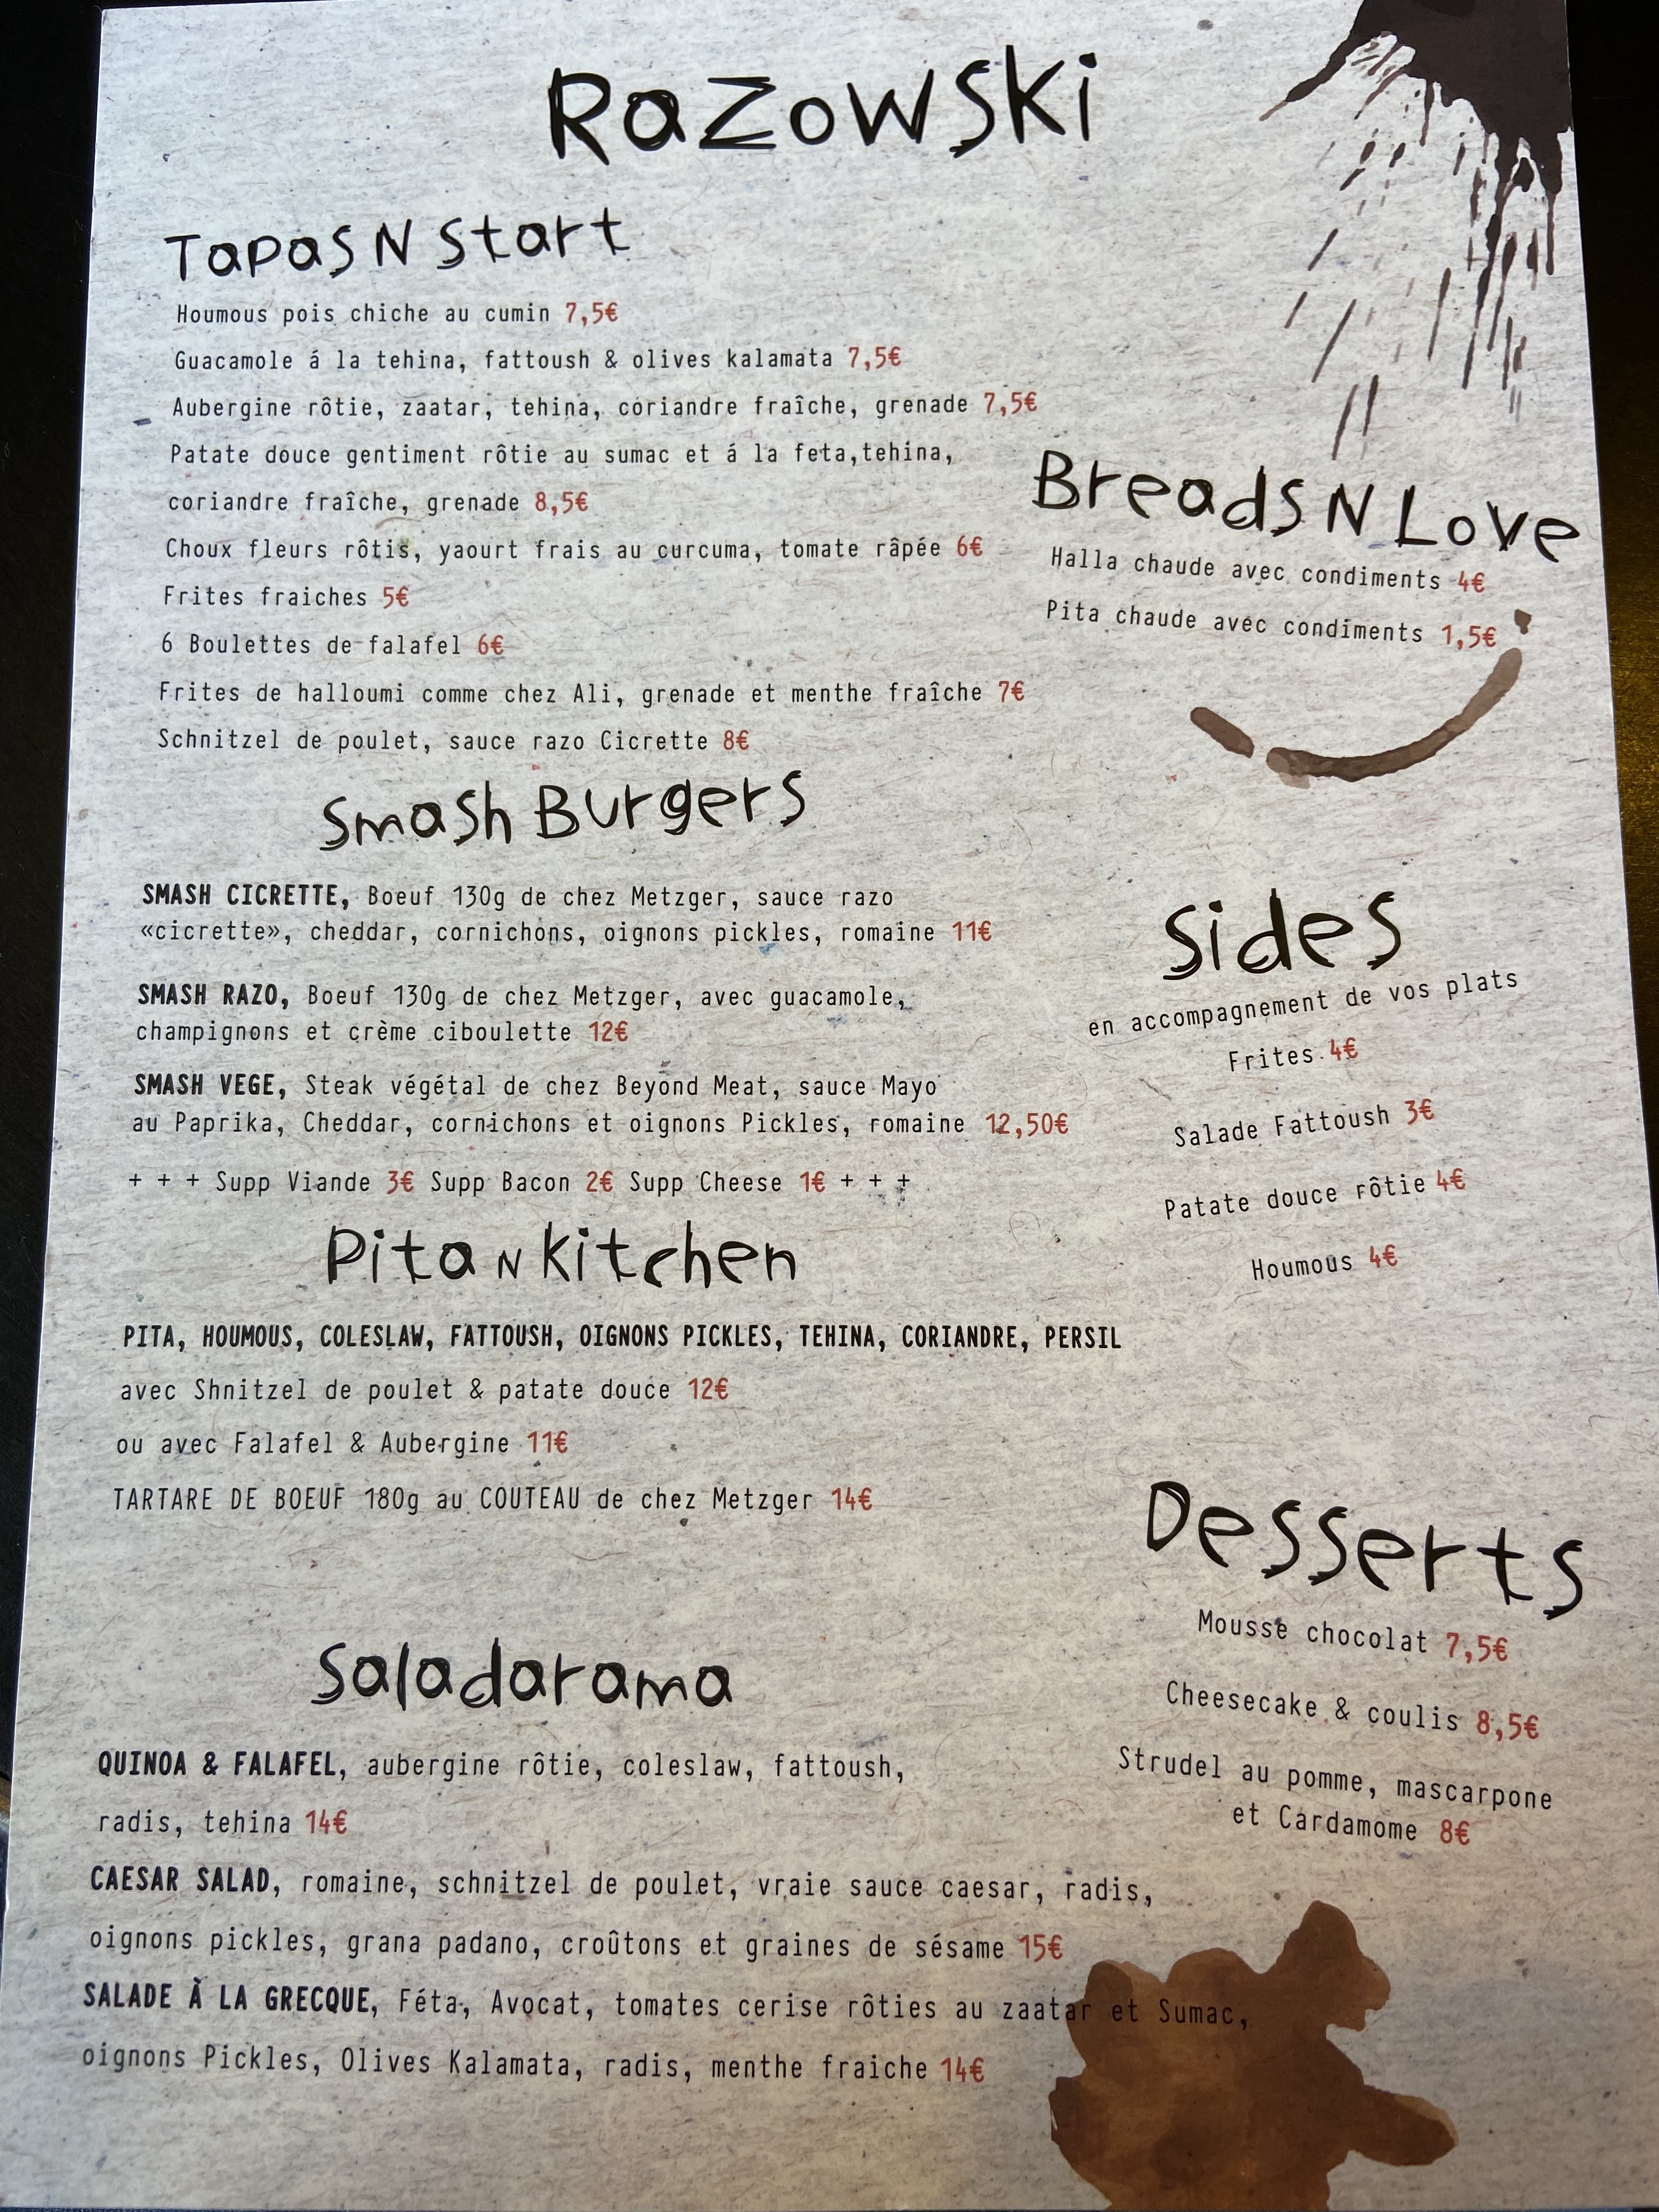 Razowski
Tapas N Start
Houmous pois chiche au cumin 7,5€
Guacamole á la tehina, fattoush & olives kalamata 7,5€
Aubergine rôtie, zaatar, tehina, coriandre fraîche, grenade 7,5€
Patate douce gentiment rôtie au sumac et á la feta,tehina,
coriandre fraîche, grenade 8,5€
Choux fleurs rôtis, yaourt frais au curcuma, tomate râpée 6€
Frites fraiches 5€
6 Boulettes de falafel 6€
Frites de halloumi comme chez Ali, grenade et menthe fraîche 7€
Schnitzel de poulet, sauce razo Cicrette 8€
Breads N Love
Halla chaude avec condiments 4€
Pita chaude avec condiments 1,5€
Smash Burgers
SMASH CICRETTE, Boeuf 130g de chez Metzger, sauce razo
«cicrette», cheddar, cornichons, oignons pickles, romaine 11€
SMASH RAZO, Boeuf 130g de chez Metzger, avec guacamole,
champignons et crème ciboulette 12€
SMASH VEGE, Steak végétal de chez Beyond Meat, sauce Mayo
au Paprika, Cheddar, cornichons et oignons Pickles, romaine 12,50€
+ + + Supp Viande 3€ Supp Bacon 2€ Supp Cheese 1€ + + +
Sides
en accompagnement de vos plats
Frites 4€
Salade Fattoush 3€
Patate douce rôtie 4€
Houmous 4€
Pita N Kitchen
PITA, HOUMOUS, COLESLAW, FATTOUSH, OIGNONS PICKLES, TEHINA, CORIANDRE, PERSIL
avec Shnitzel de poulet & patate douce 12€
ou avec Falafel & Aubergine 11€
TARTARE DE BOEUF 180g au COUTEAU de chez Metzger 14€
Desserts
Mousse chocolat 7,5€
Cheesecake & coulis 8,5€
Strudel au pomme, mascarpone
et Cardamome 8€
Saladarama
QUINOA & FALAFEL, aubergine rôtie, coleslaw, fattoush,
radis, tehina 14€
CAESAR SALAD, romaine, schnitzel de poulet, vraie sauce caesar, radis,
oignons pickles, grana padano, croûtons et graines de sésame 15€
SALADE À LA GRECQUE, Féta, Avocat, tomates cerise rôties au zaatar et Sumac,
oignons Pickles, Olives Kalamata, radis, menthe fraiche 14€